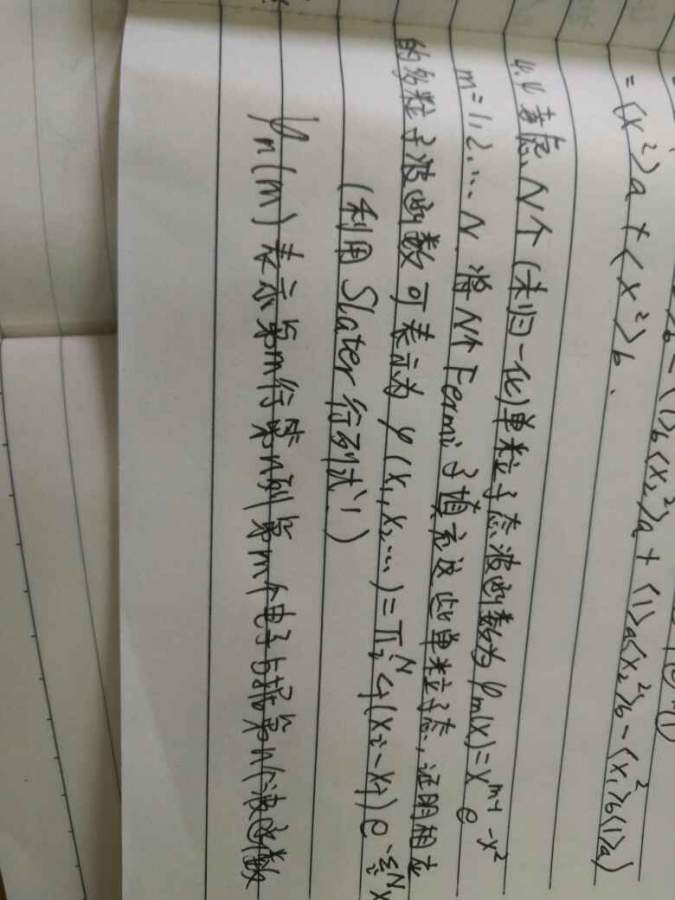 -⟨1⟩b⟨x²⟩a + ⟨1⟩a⟨x²⟩b - ⟨x₁²⟩b⟨1⟩a)
= ⟨x²⟩a + ⟨x²⟩b.
4.4 考虑N个(未归一化)单粒子态波函数为 φm(x)=x^{m-1}e^{-x²}
m=1,2,…N. 将N个Fermi子填充这些单粒子态,证明相应
的多粒子波函数可表示为 ψ(x₁,x₂…)=Π_{i<j}^{N}(x_i-x_j)e^{-Σ^{N}x
(利用Slater行列式!)
φn(m)表示第m行第n列第m个电子占据第n个波函数